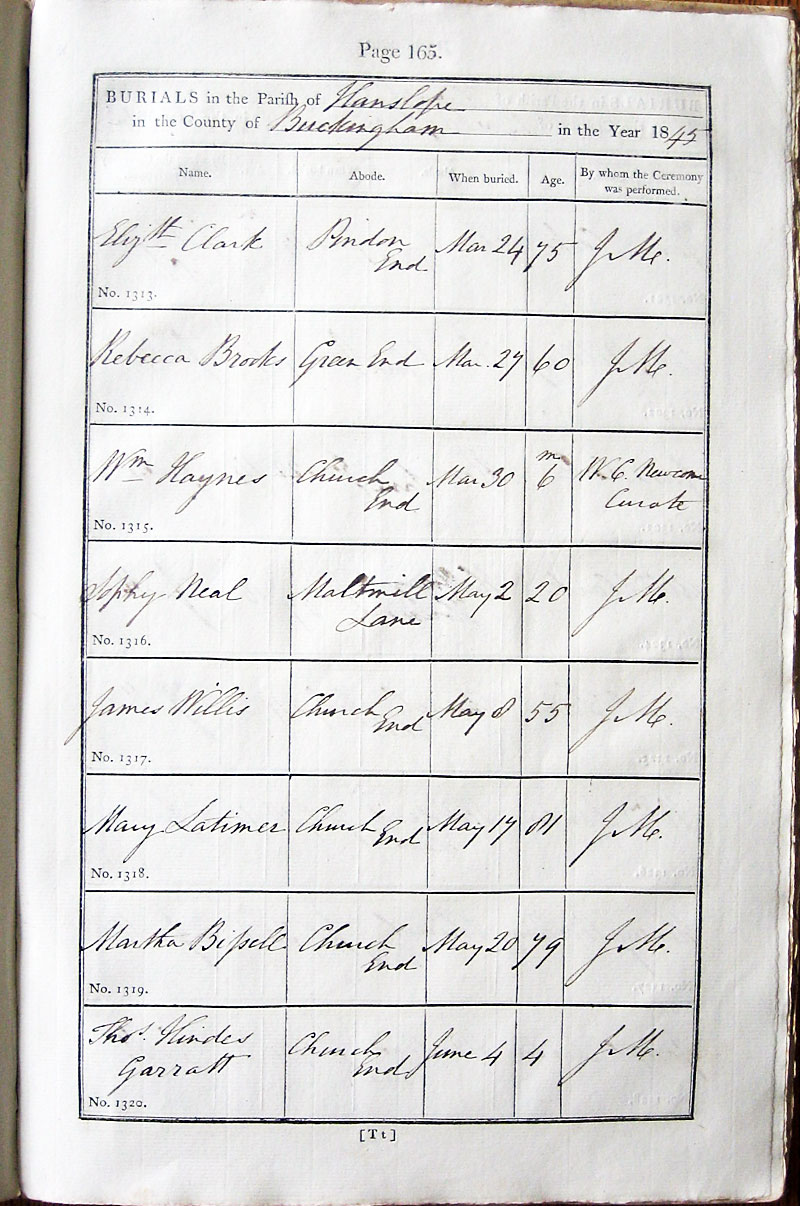 Page 165.
BURIALS in the Parish of Hanslope
in the County of Buckingham in the Year 1845
Name. Abode. When buried. Age. By whom the Ceremony was performed.
Elizth Clark Pindon End Mar 24 75 J M.
No. 1313.
Rebecca Brooks Green End Mar. 27 60 J M.
No. 1314.
Wm Haynes Church End Mar 30 6 m W. C. Newcome Curate
No. 1315.
Sophy Neal Maltmill Lane May 2 20 J M.
No. 1316.
James Willis Church End May 8 55 J M.
No. 1317.
Mary Latimer Church End May 17 81 J M.
No. 1318.
Martha Bissell Church End May 20 79 J M.
No. 1319.
Thos. Hindes Garratt Church End June 4 4 J M.
No. 1320.
[Tt]